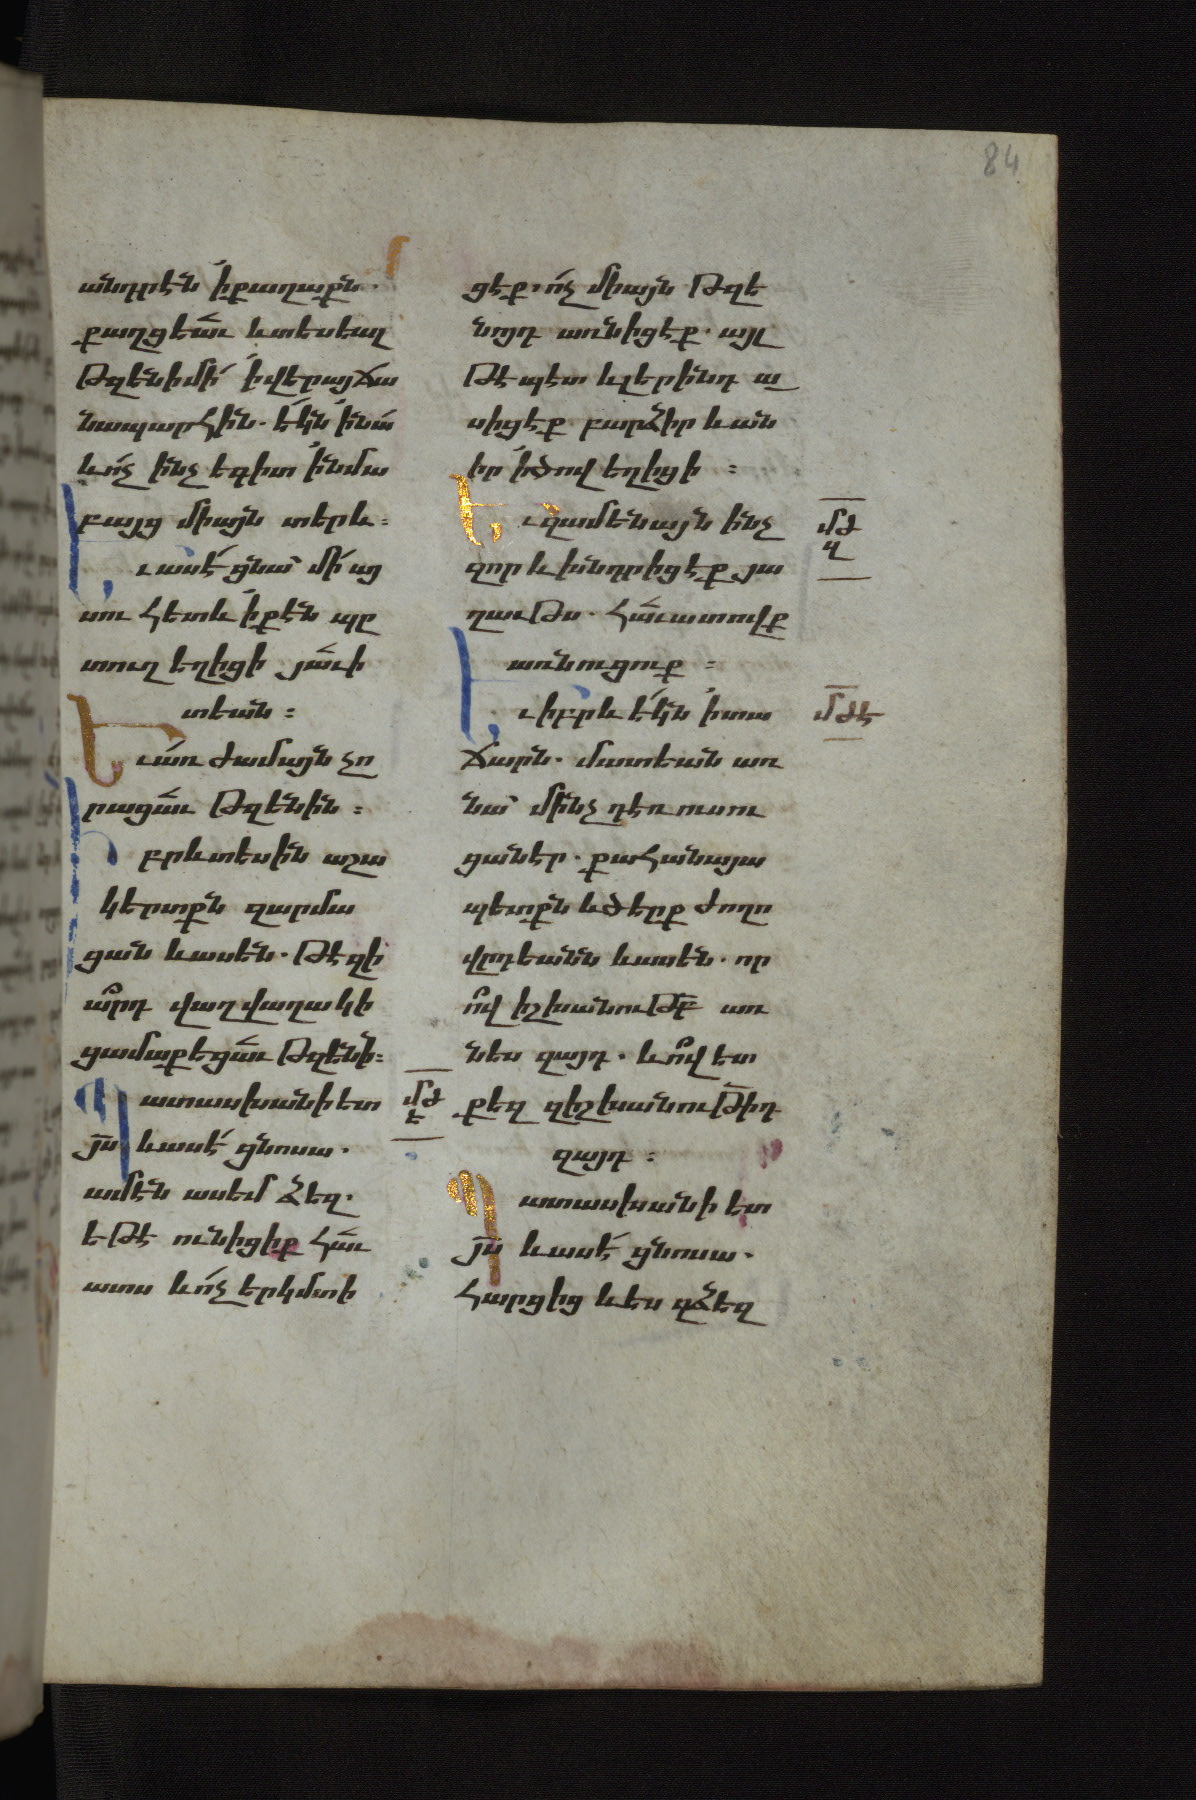 84
անդրէն ՛ի քաղաքն.
քաղցեաւ և տեսեալ
թզենի մի ՛ի վերայ ճա
նապարհին. եկն ՛ի նա
և ոչ ինչ եգիտ ՛ի նմա
բայց միայն տերև։
Եւ ասէ ցնա մի ևս
սու հետև ՛ի քէն պը
տուղ եղիցի յաւի
տեան։
Եւ առ ժամայն չո
րացաւ թզենին։
Իբրև տեսին աշա
կերտքն զարմա
ցան և ասեն. թէ զի
արդ վաղվաղակի
ցամաքեցաւ թզենի։
Պատասխանի ետ
յս և ասէ ցնոսա.
ամէն ասեմ ձեզ.
եթէ ունիցիք հաւ
ատս և ոչ երկմտի
մժ
ե
ցէք. ոչ միայն թզե
նոյդ առնիցէք. այլ
թէպէտ և լերինդ ա
սիցէք բարձիր և ան
իր ՛ի ծով եղիցի։
Եւ զամենայն ինչ
զոր և խնդրիցէք յա
ղաւթս. հաւատովք
առնուցուք։
Եւ իբրև եկն ՛ի տա
ճարն. մատեան առ
նա մինչ դեռ ուսու
ցաներ. քահանայա
պետքն և ծերք ժողո
վրդեանն և ասեն. որ
ով իշխանութբ առ
նես զայդ. և ով ետ
քեզ զիշխանութիդ
զայդ։
Պատասխանի ետ
յս և ասէ ցնոսա.
Հարցից և ես զձեզ
մժ
զ
մժէ